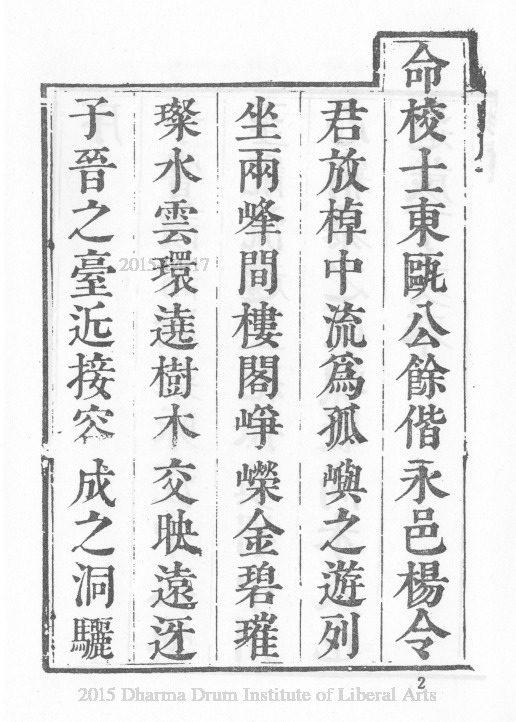 命校士東甌公餘偕永邑楊令
君放棹中流爲孤嶼之遊列
坐兩峰間樓閣崢嶸金碧璀
璨水雲環遶樹木交映遠迓
子晉之臺近接容成之洞驪
2
2015 Dharma Drum Institute of Liberal Arts